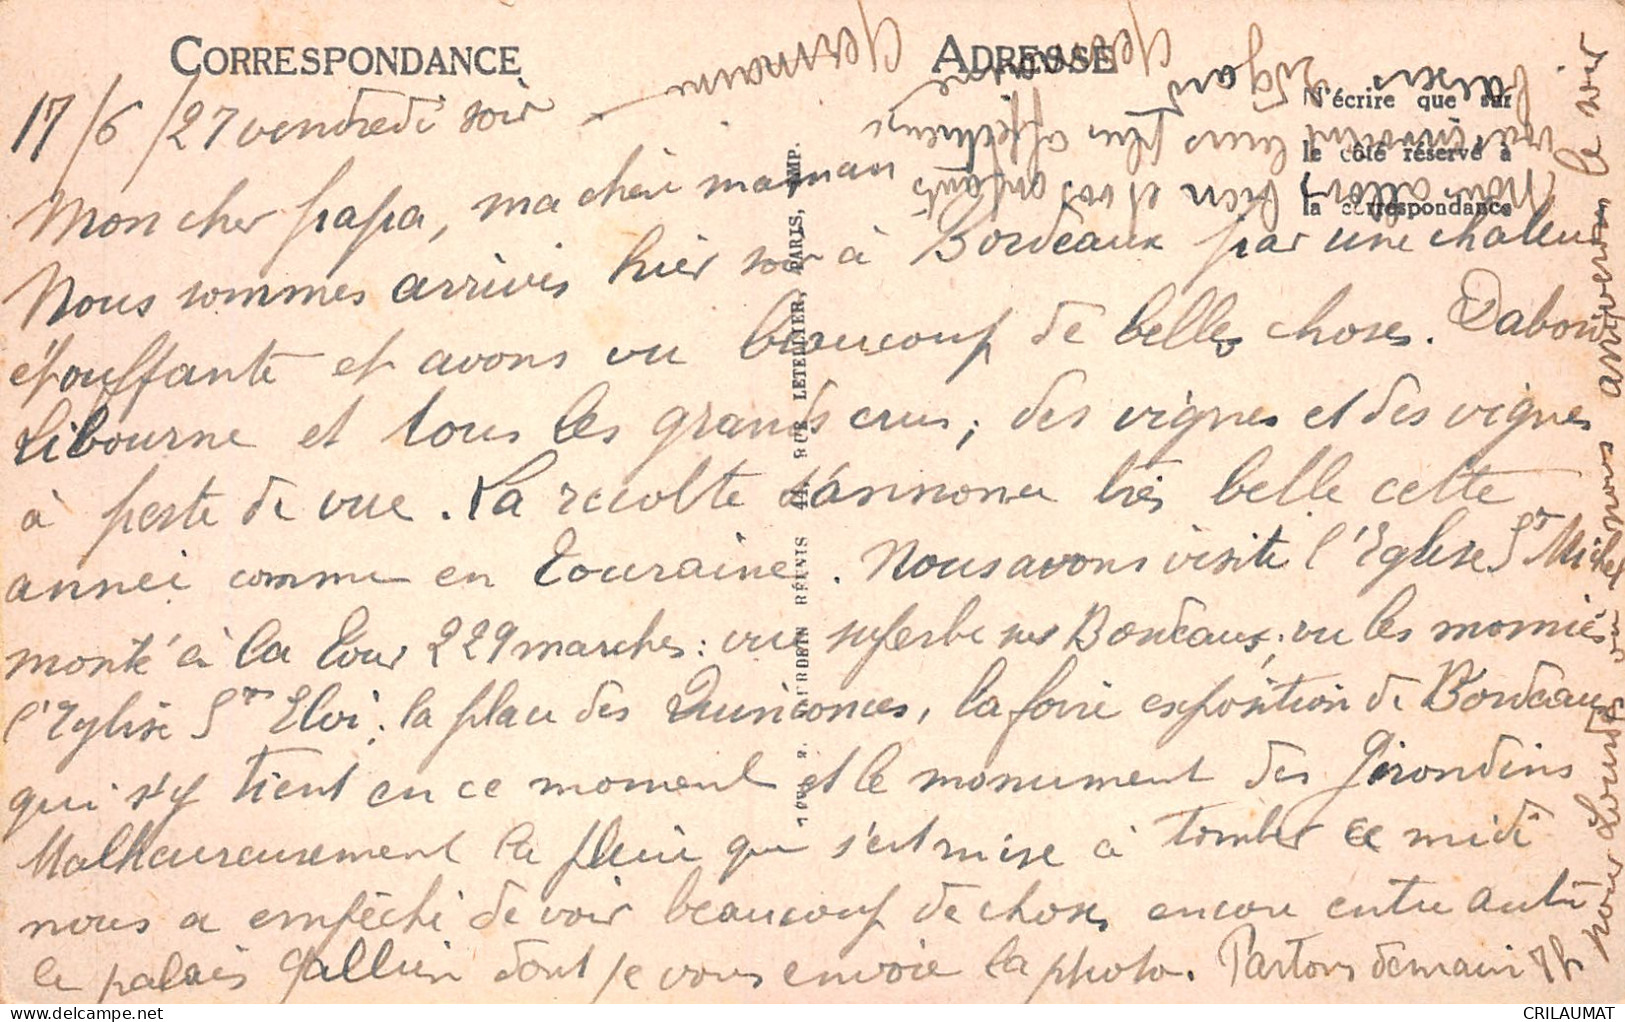 CORRESPONDANCE
ADRESSE
N'écrire que sur
le côté réservé à
la correspondance
17/6/27 vendredi soir
Mon cher papa, ma chère maman
Nous sommes arrivés hier soir à Bordeaux par une chaleur
étouffante et avons vu beaucoup de belles choses. Dabord
Libourne et tous les grands crus; des vignes et des vignes
à perte de vue. La récolte s'annonce très belle cette
année comme en Touraine. Nous avons visité l'Eglise St Michel
monté à la tour 229 marches: vue superbe sur Bordeaux; vu les momies
l'Eglise St Eloi; la place des Quinconces, la foire exposition de Bordeaux
qui s'y tient en ce moment et le monument des Girondins
Malheureusement la pluie qui s'est mise à tomber ce midi
nous a empêché de voir beaucoup de choses encore entre autre
le palais Gallien dont je vous envoie la photo. Partons demain 8h
pour Lourdes où nous arriverons le soir.
Nous allons bien et vos enfants
vous envoient leurs plus affectueux
baisers
Germaine
RUE LETELLIER, PARIS, IMP.
RÉUNIS